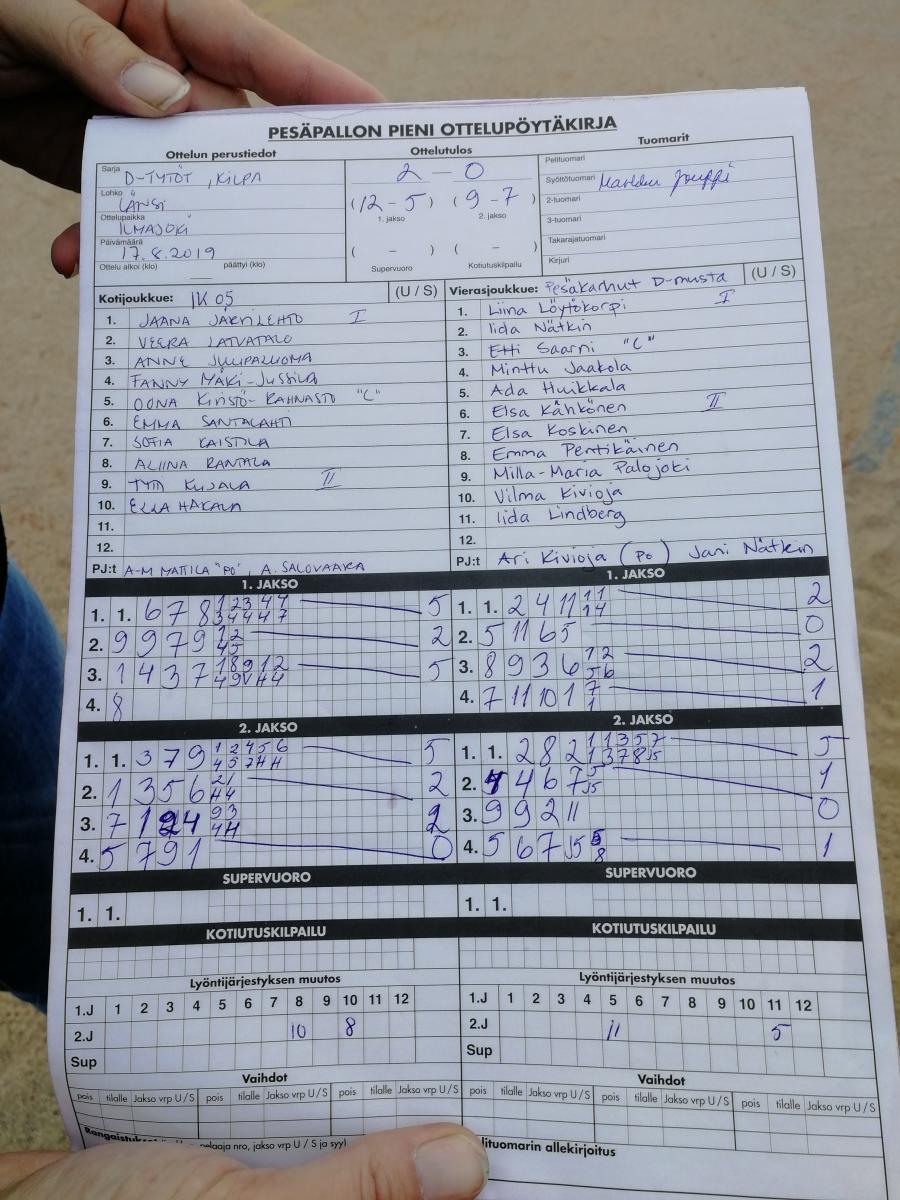 PESÄPALLON PIENI OTTELUPÖYTÄKIRJA
Ottelun perustiedot
Sarja D-TYTÖT, KILPA
Lohko LÄNSI
Ottelupaikka ILMAJOKI
Päivämäärä 17.8.2019
Ottelu alkoi (klo) päättyi (klo)
Ottelutulos
2 - 0
(12 - 5) (9 - 7)
1. jakso 2. jakso
( - ) ( - )
Supervuoro Kotiutuskilpailu
Tuomarit
Pelituomari
Syöttötuomari
2-tuomari
3-tuomari
Takarajatuomari
Kirjuri
Kotijoukkue: IK 05 (U / S)
1. JAANA JÄRVILEHTO I
2. VEERA LATVATALO
3. ANNE JULIPALUOMA
4. FANNY MÄKI-JUSSILA
5. OONA KIVISTÖ-RAHNASTO "C"
6. EMMA SANTALAHTI
7. SOFIA KAISTILA
8. ALIINA RANTALA
9. TYTTI KUJALA II
10. ELLA HAKALA
11.
12.
PJ:t A-M MATTILA "PO", A. SALOVAARA
Vierasjoukkue: Pesäkarhut D-musta (U / S)
1. Liina Löytökorpi I
2. Iida Nätkin
3. Etti Saarni "C"
4. Minttu Jaakola
5. Ada Huikkala
6. Elsa Kähkönen II
7. Elsa Koskinen
8. Emma Pentikäinen
9. Milla-Maria Palojoki
10. Vilma Kivioja
11. Iida Lindberg
12.
PJ:t Ari Kivioja (PO) Jani Nätkin
1. JAKSO
1. 1. 6 7 8 5
2. 9 9 7 9 2
3. 1 4 3 7 5
4. 8
1. JAKSO
1. 1. 2 4 11 2
2. 5 11 6 5 0
3. 8 9 3 6 2
4. 7 11 10 1 1
2. JAKSO
1. 1. 3 7 9 5
2. 1 3 5 6 2
3. 7 2
4. 5 7 9 1 0
2. JAKSO
1. 1. 2 8 2 5
2. 4 6 7 1
3. 9 9 2 11 0
4. 5 6 7 1
SUPERVUORO
1. 1.
SUPERVUORO
1. 1.
KOTIUTUSKILPAILU
KOTIUTUSKILPAILU
Lyöntijärjestyksen muutos
1.J 1 2 3 4 5 6 7 8 9 10 11 12
2.J 10 8
Sup
Lyöntijärjestyksen muutos
1.J 1 2 3 4 5 6 7 8 9 10 11 12
2.J 11 5
Sup
Vaihdot
pois tilalle Jakso vrp U / S pois tilalle Jakso vrp U / S pois tilalle Jakso vrp U / S
Vaihdot
pois tilalle Jakso vrp U / S pois tilalle Jakso vrp U / S pois tilalle Jakso vrp U / S
pelaaja nro, jakso vrp U / S ja syy)
allekirjoitus